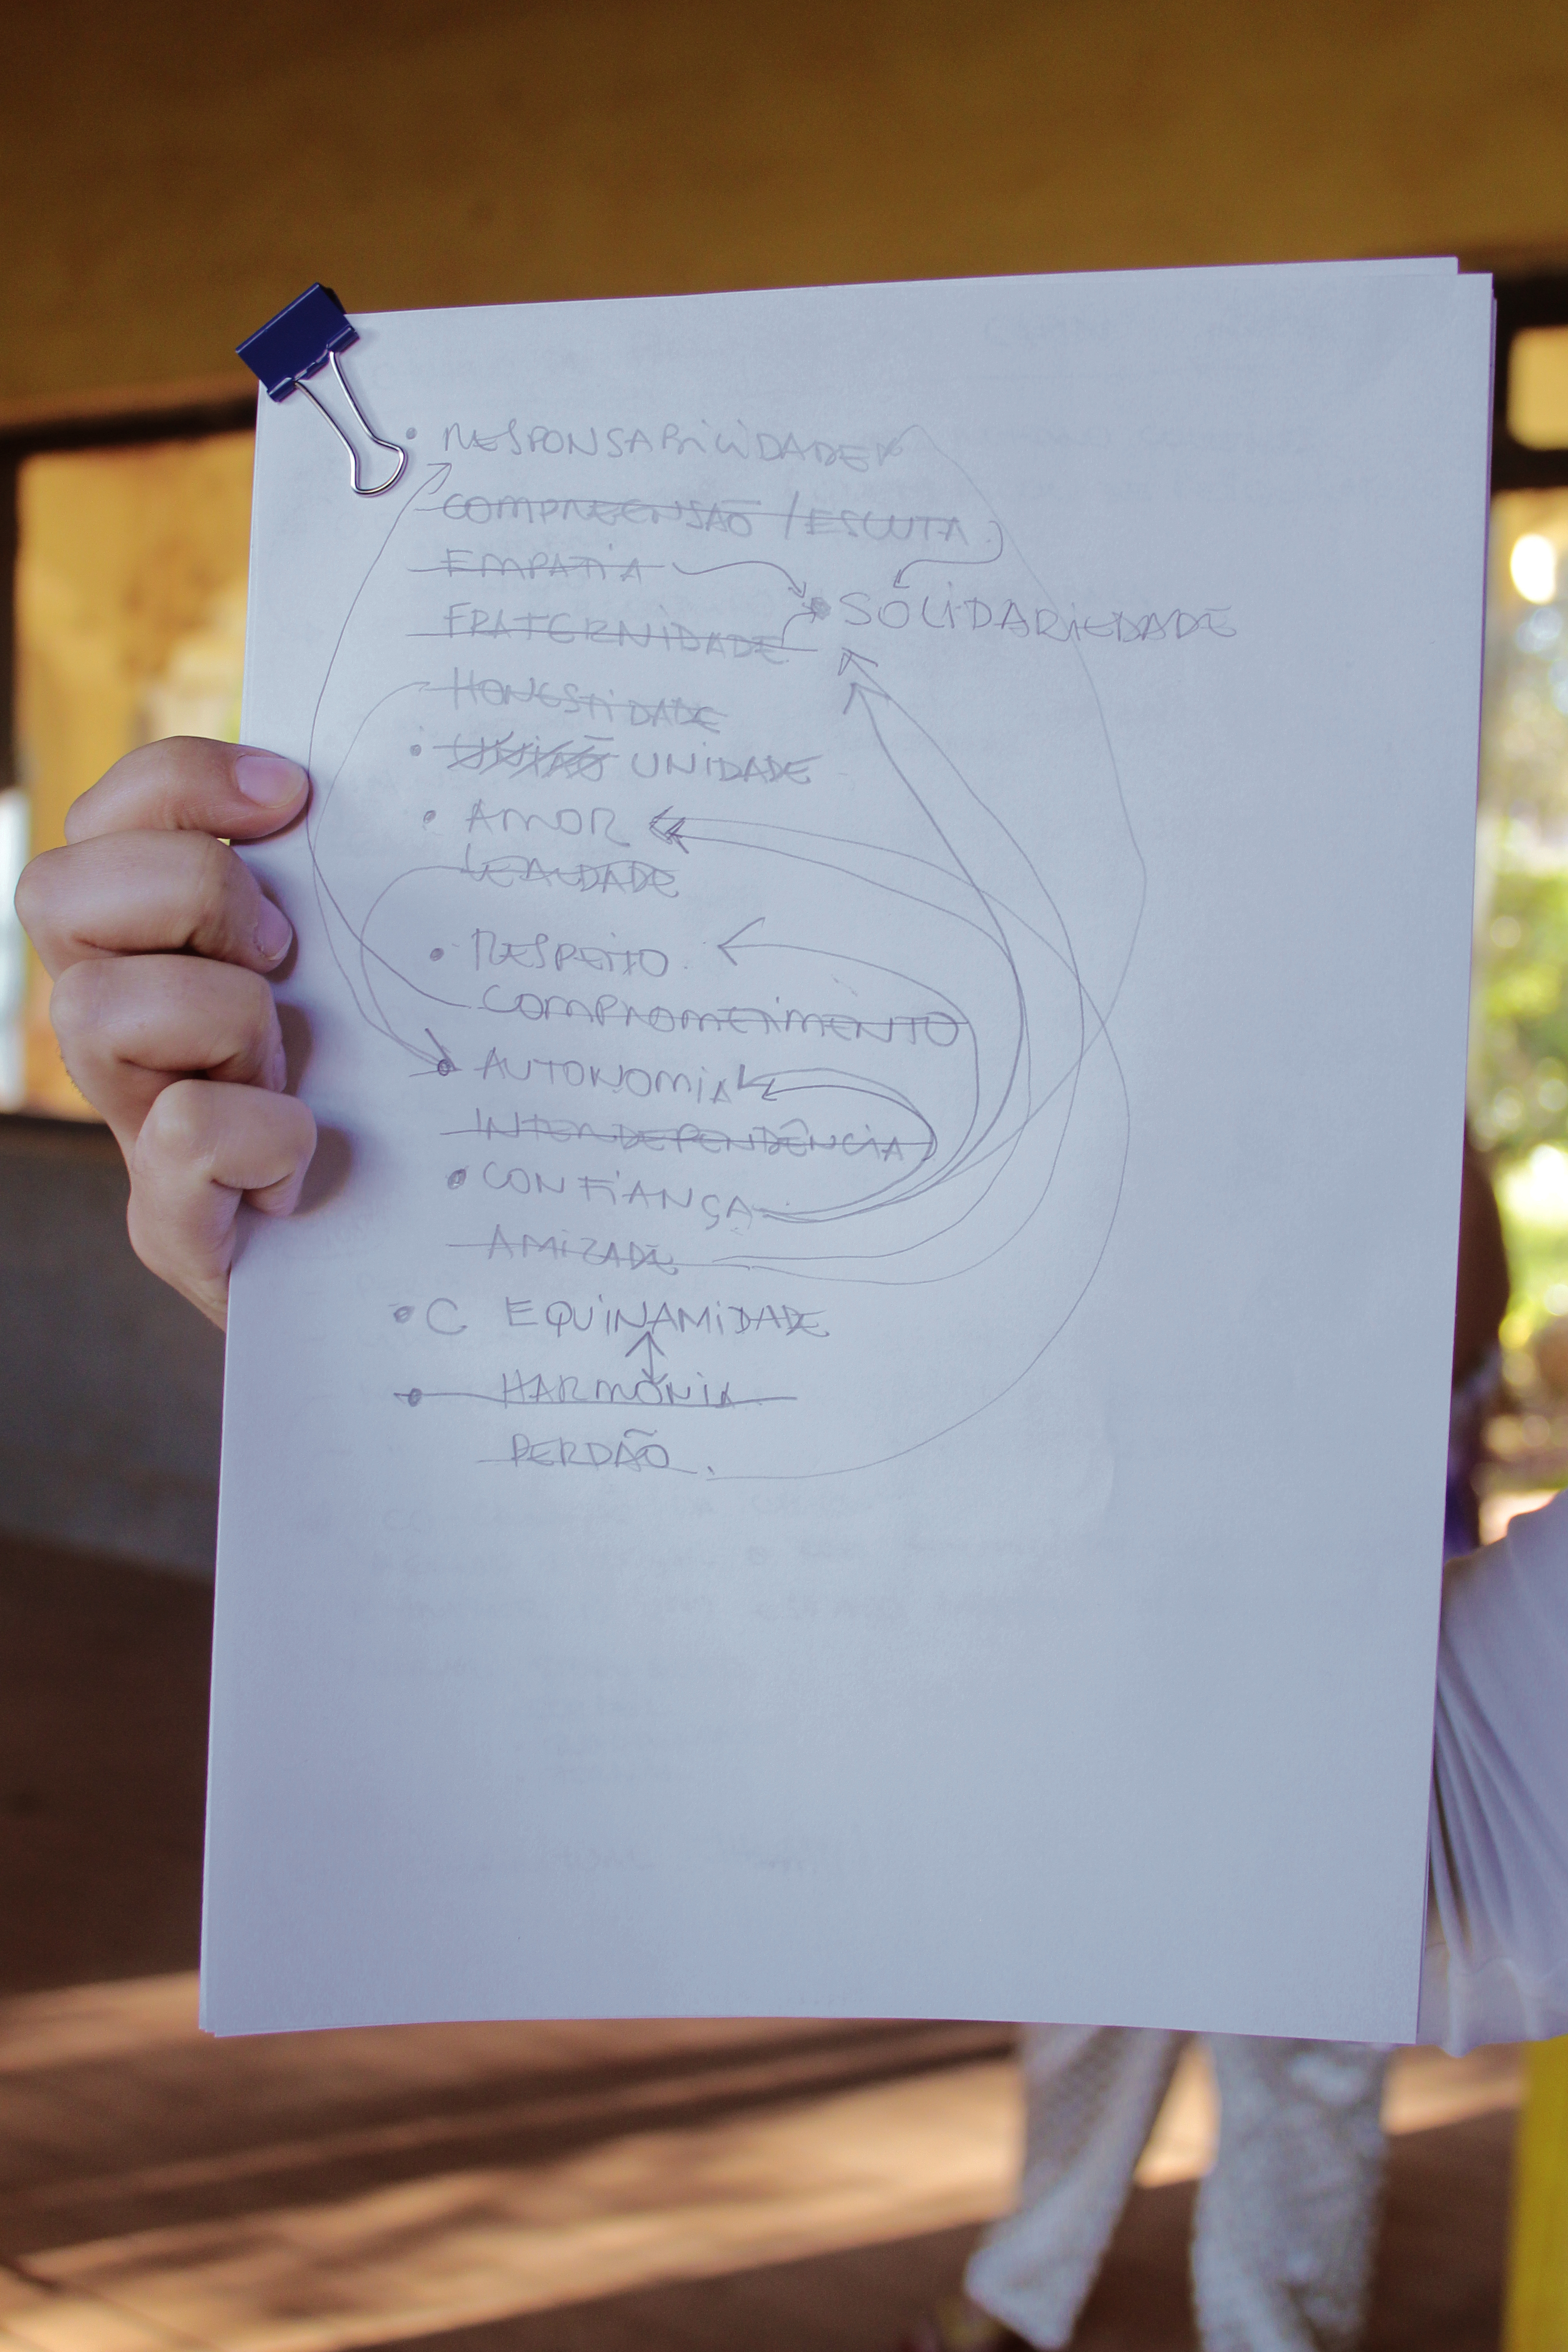 • RESPONSABILIDADE
COMPREENSÃO / ESCUTA
EMPATIA
• SOLIDARIEDADE
FRATERNIDADE
HONESTIDADE
• UNIÃO UNIDADE
• AMOR
LEALDADE
• RESPEITO
COMPROMETIMENTO
• AUTONOMIA
INTERDEPENDÊNCIA
• CONFIANÇA
AMIZADE
• C EQUINAMIDADE
• HARMONIA
PERDÃO